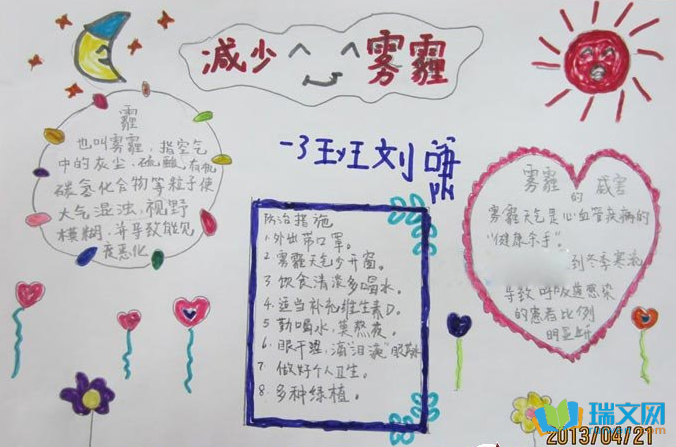 减少雾霾
一3班刘
霾
也叫雾霾，指空气
中的灰尘，硫酸，有机
碳氢化合物等粒子使
大气混浊，视野
模糊，并导致能见
度恶化
防治措施
1.外出带口罩。
2.雾霾天气少开窗。
3.饮食清淡多喝水。
4.适当补充维生素D。
5.勤喝水，莫熬夜。
6.眼干涩，滴"泪滴"眼
7.做好个人卫生。
8.多种绿植。
雾霾的
雾霾天气是心血管疾病的
"健康杀手"。
到冬季寒
导致呼吸道感染
的患者比例
明显
瑞文网
2013/04/21